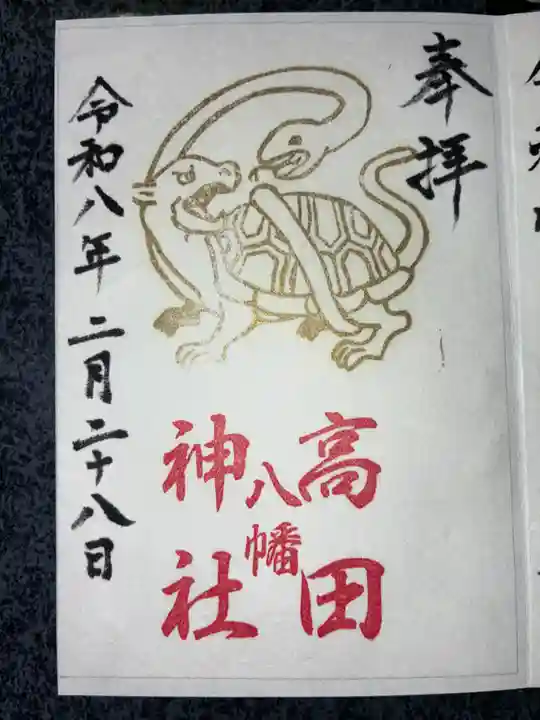 奉拝
高田
八幡
神社
令和八年二月二十八日